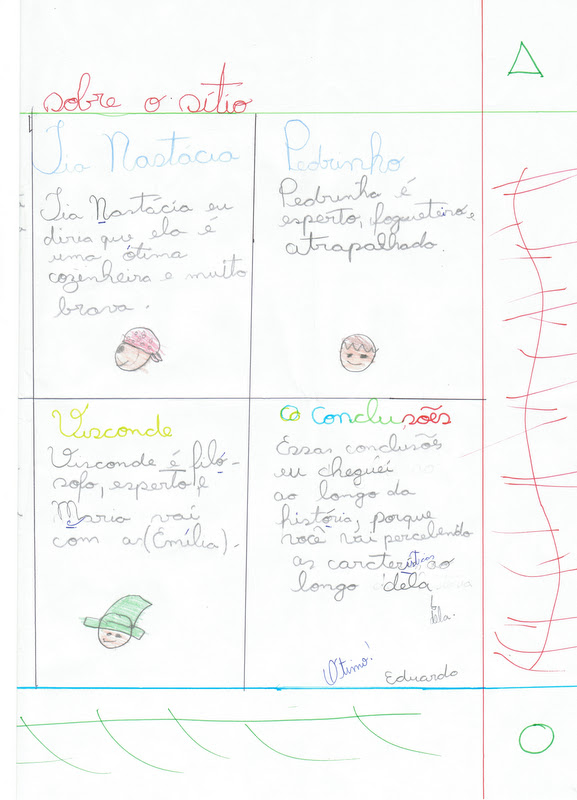 sobre o sítio
Tia Nastácia
Tia Nastácia eu
diria que ela é
uma ótima
cozenheira e muito
brava.
Pedrinho
Pedrinho é
esperto, fogueteiro e
atrapalhado.
Visconde
Visconde é filó-
sofo, esperto, e
Maria vai
com as (Emília).
Conclusões
Essas conclusões
eu cheguei
ao longo da
história, porque
você vai percebendo
as carcterísticas ao
longo dela
dela.
Ótimo!
Eduardo